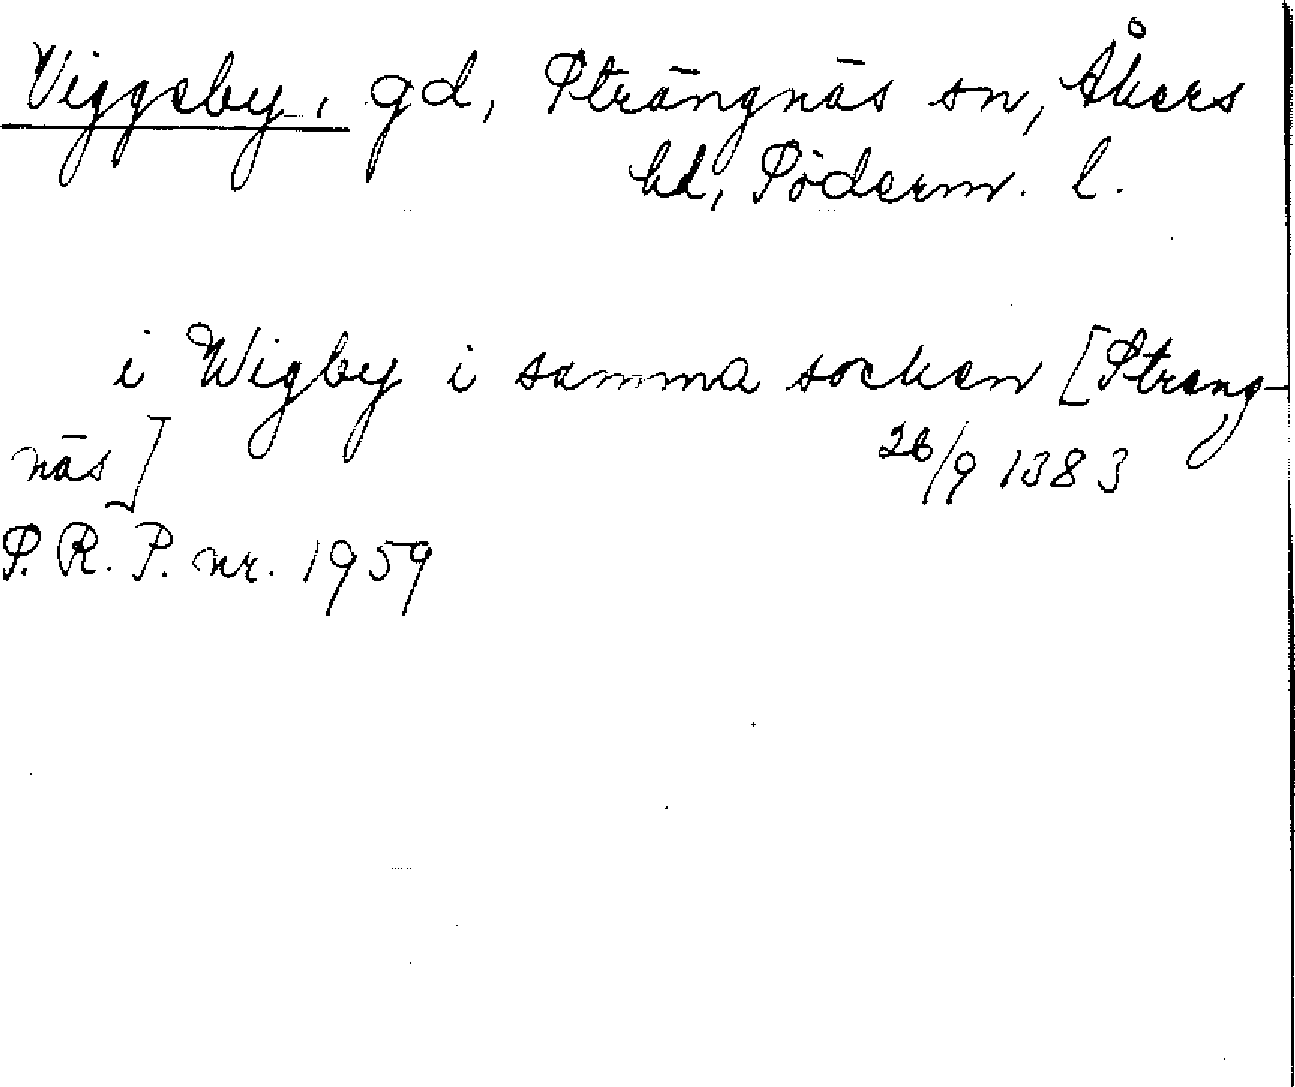 Viggeby, gd, Strängnäs sn, Åkers
hd, Söderm. l.
i Wigby i samma socken [Streng-
näs] 26/9 1383
S. R. P. nr. 1959